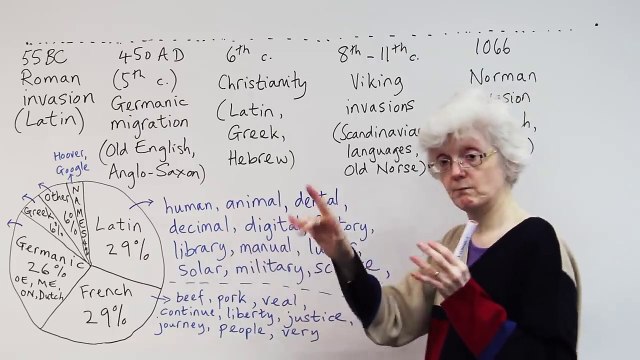 55BC
Roman
invasion
(Latin)
450 AD
(5th c.)
Germanic
migration
(Old English,
Anglo-Saxon)
6th c.
Christianity
(Latin,
Greek,
Hebrew)
8th-11th c.
Viking
invasions
(Scandinavian
languages,
Old Norse)
1066
Norman
Hoover,
Google
NAMES 4%
Other
6%
Greek
6%
Germanic
26%
OE, ME,
ON, Dutch
Latin
29%
French
29%
human, animal, dental,
decimal, digital,
library, manual,
solar, military,
beef, pork, veal,
continue, liberty, justice,
journey, people, very